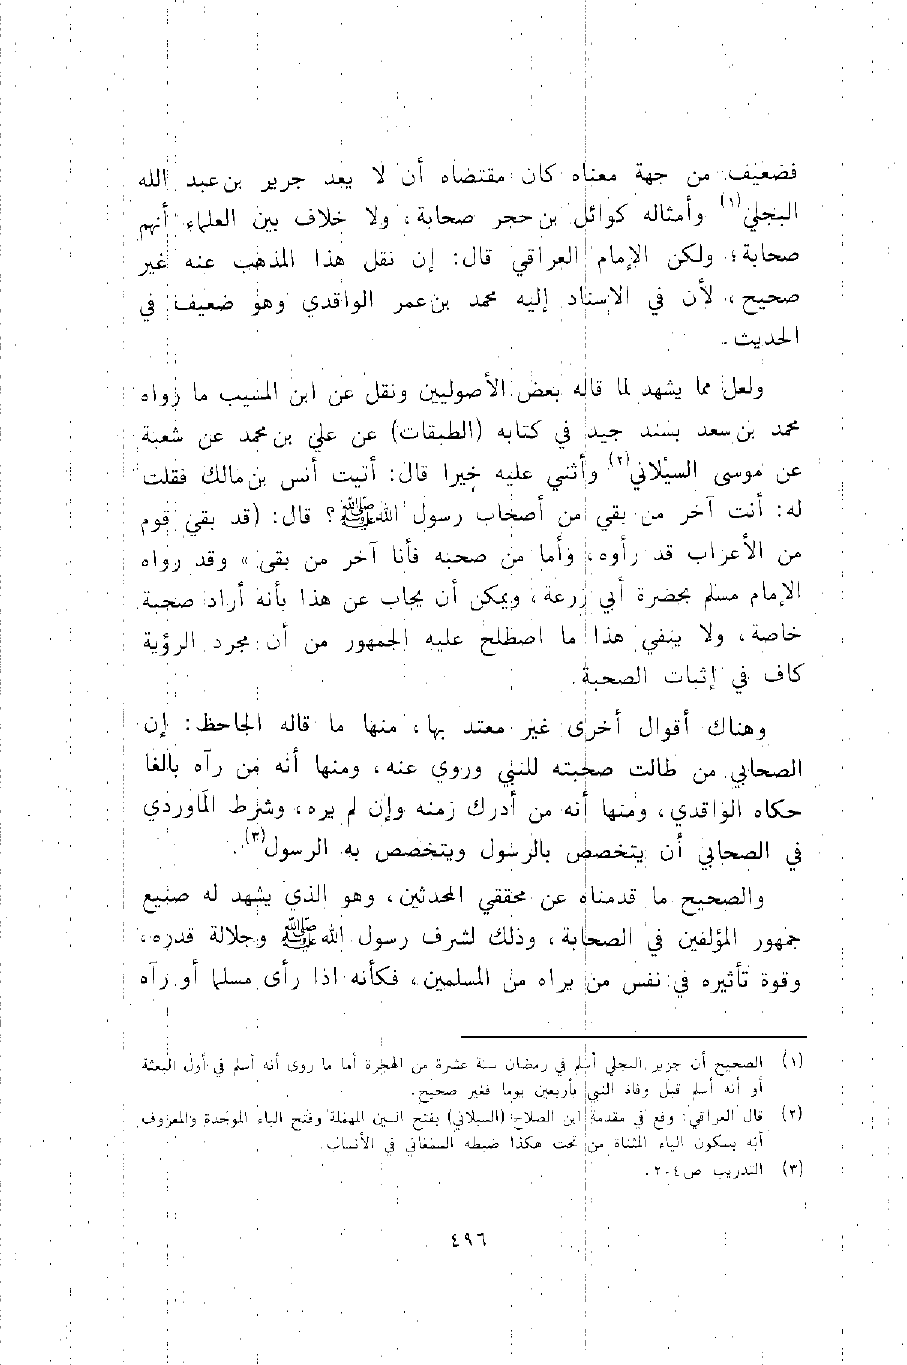 فضعيف من جهة معناه كان مقتضاه أن لا يعد جرير بن عبد الله
البجلي(١) وأمثاله كوائل بن حجر صحابة، ولا خلاف بين العلماء أنهم
صحابة؛ ولكن الإمام العراقي قال: إن نقل هذا المذهب عنه غير
صحيح، لأن في الاسناد إليه محمد بن عمر الواقدي وهو ضعيف في
الحديث.
ولعل مما يشهد لما قاله بعض الأصوليين ونقل عن ابن المسيب ما رواه
محمد بن سعد بسند جيد في كتابه (الطبقات) عن علي بن محمد عن شعبة
عن موسى السيْلاني(٢) وأثني عليه خيرا قال: أتيت أنس بن مالك فقلت
له: أنت آخر من بقي من أصحاب رسول اللهﷺ؟ قال: (قد بقي قوم
من الأعراب قد رأوه، وأما من صحبه فأنا آخر من بقي» وقد رواه
الإمام مسلم بحضرة أبي زرعة، ويمكن أن يجاب عن هذا بأنه أراد صحبة
خاصة، ولا ينفي هذا ما اصطلح عليه الجمهور من أن مجرد الرؤية
كاف في إثبات الصحبة.
وهناك أقوال أخرى غير معتد بها، منها ما قاله الجاحظ: إن
الصحابي من طالت صحبته للنبي وروي عنه، ومنها أنه من رآه بالغا
حكاه الواقدي، ومنها أنه من أدرك زمنه وإن لم يره، وشرط الماوردي
في الصحابي أن يتخصص بالرسول ويتخصص به الرسول(٣).
والصحيح ما قدمناه عن محققي المحدثين، وهو الذي يشهد له صنيع
جمهور المؤلفين في الصحابة، وذلك لشرف رسول اللهﷺ وجلالة قدره،
وقوة تأثيره في نفس من يراه من المسلمين، فكأنه اذا رأى مسلما أو رآه
(١) الصحيح أن جرير البجلي أسلم في رمضان سنة عشرة من الهجرة أما ما روى أنه أسلم في أول البعثة
أو أنه أسلم قبل وفاة النبي بأربعين يوما فغير صحيح.
(٢) قال العراقي: وقع في مقدمة ابن الصلاح (السبلاني) بفتح السين المهملة وفتح الباء الموحدة والمعروف
أنه بسكون الياء المثناة من تحت هكذا ضبطه السمعاني في الأنساب.
(٣) التدريب ص٢٠٤.
٤٩٦